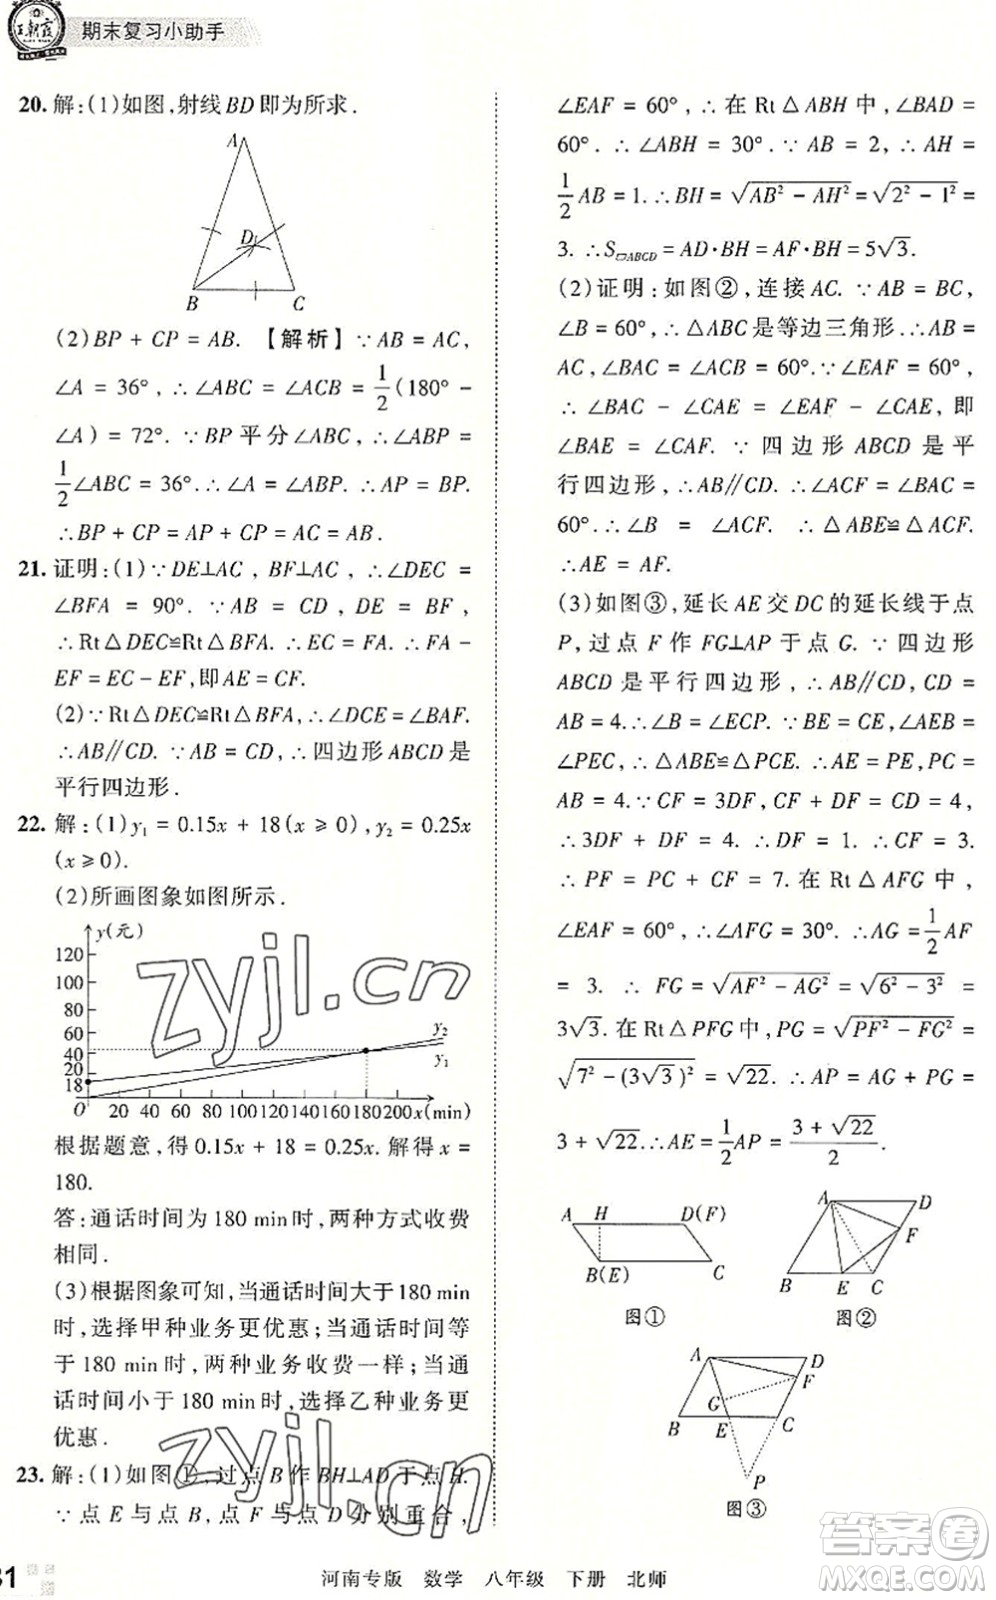 王朝霞
期末复习小助手
20. 解:(1)如图,射线 BD 即为所求.
A
D
B C
(2)BP + CP = AB. 【解析】∵AB = AC,
∠A = 36°, ∴∠ABC = ∠ACB = 1/2(180° -
∠A) = 72°. ∵BP 平分∠ABC, ∴∠ABP =
1/2∠ABC = 36°. ∴∠A = ∠ABP. ∴AP = BP.
∴BP + CP = AP + CP = AC = AB.
21. 证明:(1)∵DE⊥AC, BF⊥AC, ∴∠DEC =
∠BFA = 90°. ∵AB = CD, DE = BF,
∴Rt△DEC≌Rt△BFA. ∴EC = FA. ∴FA -
EF = EC - EF,即AE = CF.
(2)∵Rt△DEC≌Rt△BFA, ∴∠DCE = ∠BAF.
∴AB∥CD. ∵AB = CD, ∴四边形 ABCD 是
平行四边形.
22. 解:(1)y₁ = 0.15x + 18(x ≥ 0), y₂ = 0.25x
(x ≥ 0).
(2)所画图象如图所示.
y(元)
120
100
80
60
40
20
18
y₂
y₁
O 20 40 60 80 100 120 140 160 180 200 x(min)
根据题意,得 0.15x + 18 = 0.25x. 解得 x =
180.
答:通话时间为 180 min 时,两种方式收费
相同.
(3)根据图象可知,当通话时间大于 180 min
时,选择甲种业务更优惠;当通话时间等
于 180 min 时,两种业务收费一样;当通
话时间小于 180 min 时,选择乙种业务更
优惠.
23. 解:(1)如图①,过点 B 作 BH⊥AD 于点 H.
∵点 E 与点 B, 点 F 与点 D 分别重合,
∠EAF = 60°, ∴在 Rt△ABH 中, ∠BAD =
60°. ∴∠ABH = 30°. ∵AB = 2, ∴AH =
1/2AB = 1. ∴BH = √(AB² - AH²) = √(2² - 1²) =
3. ∴S▱ABCD = AD·BH = AF·BH = 5√3.
(2)证明:如图②,连接 AC. ∵AB = BC,
∠B = 60°, ∴△ABC 是等边三角形. ∴AB =
AC, ∠BAC = ∠ACB = 60°. ∵∠EAF = 60°,
∴∠BAC - ∠CAE = ∠EAF - ∠CAE, 即
∠BAE = ∠CAF. ∵四边形 ABCD 是平
行四边形, ∴AB∥CD. ∴∠ACF = ∠BAC =
60°. ∴∠B = ∠ACF. ∴△ABE≌△ACF.
∴AE = AF.
(3)如图③,延长 AE 交 DC 的延长线于点
P, 过点 F 作 FG⊥AP 于点 G. ∵四边形
ABCD 是平行四边形, ∴AB∥CD, CD =
AB = 4. ∴∠B = ∠ECP. ∵BE = CE, ∠AEB =
∠PEC, ∴△ABE≌△PCE. ∴AE = PE, PC =
AB = 4. ∵CF = 3DF, CF + DF = CD = 4,
∴3DF + DF = 4. ∴DF = 1. ∴CF = 3.
∴PF = PC + CF = 7. 在 Rt△AFG 中,
∠EAF = 60°, ∴∠AFG = 30°. ∴AG = 1/2AF
= 3. ∴FG = √(AF² - AG²) = √(6² - 3²) =
3√3. 在 Rt△PFG 中, PG = √(PF² - FG²) =
√(7² - (3√3)²) = √22. ∴AP = AG + PG =
3 + √22. ∴AE = 1/2AP = (3 + √22)/2.
A H D(F)
B(E) C
图①
A D
F
B E C
图②
A D
F
G
B E C
P
图③
zyjl.cn
zyjl.cn
答案圈
MXQE.COM
31
河南专版 数学 八年级 下册 北师